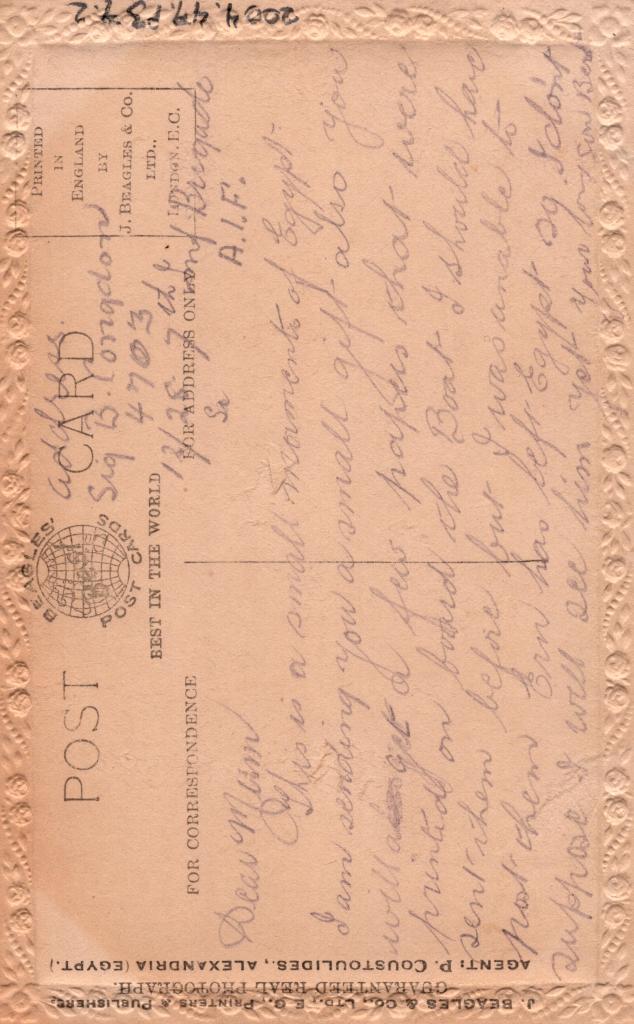 2004.49.P37.2
POST CARD
BEAGLES' POST CARDS
BEST IN THE WORLD
PRINTED
IN
ENGLAND
BY
J. BEAGLES & CO.
LTD.,
LONDON. E.C.
FOR CORRESPONDENCE
FOR ADDRESS ONLY
Address.
Sig B. Longdon
4703
13/25 7th
Inf Brigade
A.I.F.
Dear Mum
This is a small momento of Egypt.
I am sending you a small gift also you
will get a few papers that were
printed on board the Boat I should have
sent them before but I was unable to
post them Ern has left Egypt so I dont
suppose I will see him yet your son Bert
J. BEAGLES & CO., LTD., E.C., PRINTERS & PUBLISHERS.
GUARANTEED REAL PHOTOGRAPH.
AGENT: P. COUSTOULIDES, ALEXANDRIA (EGYPT.)